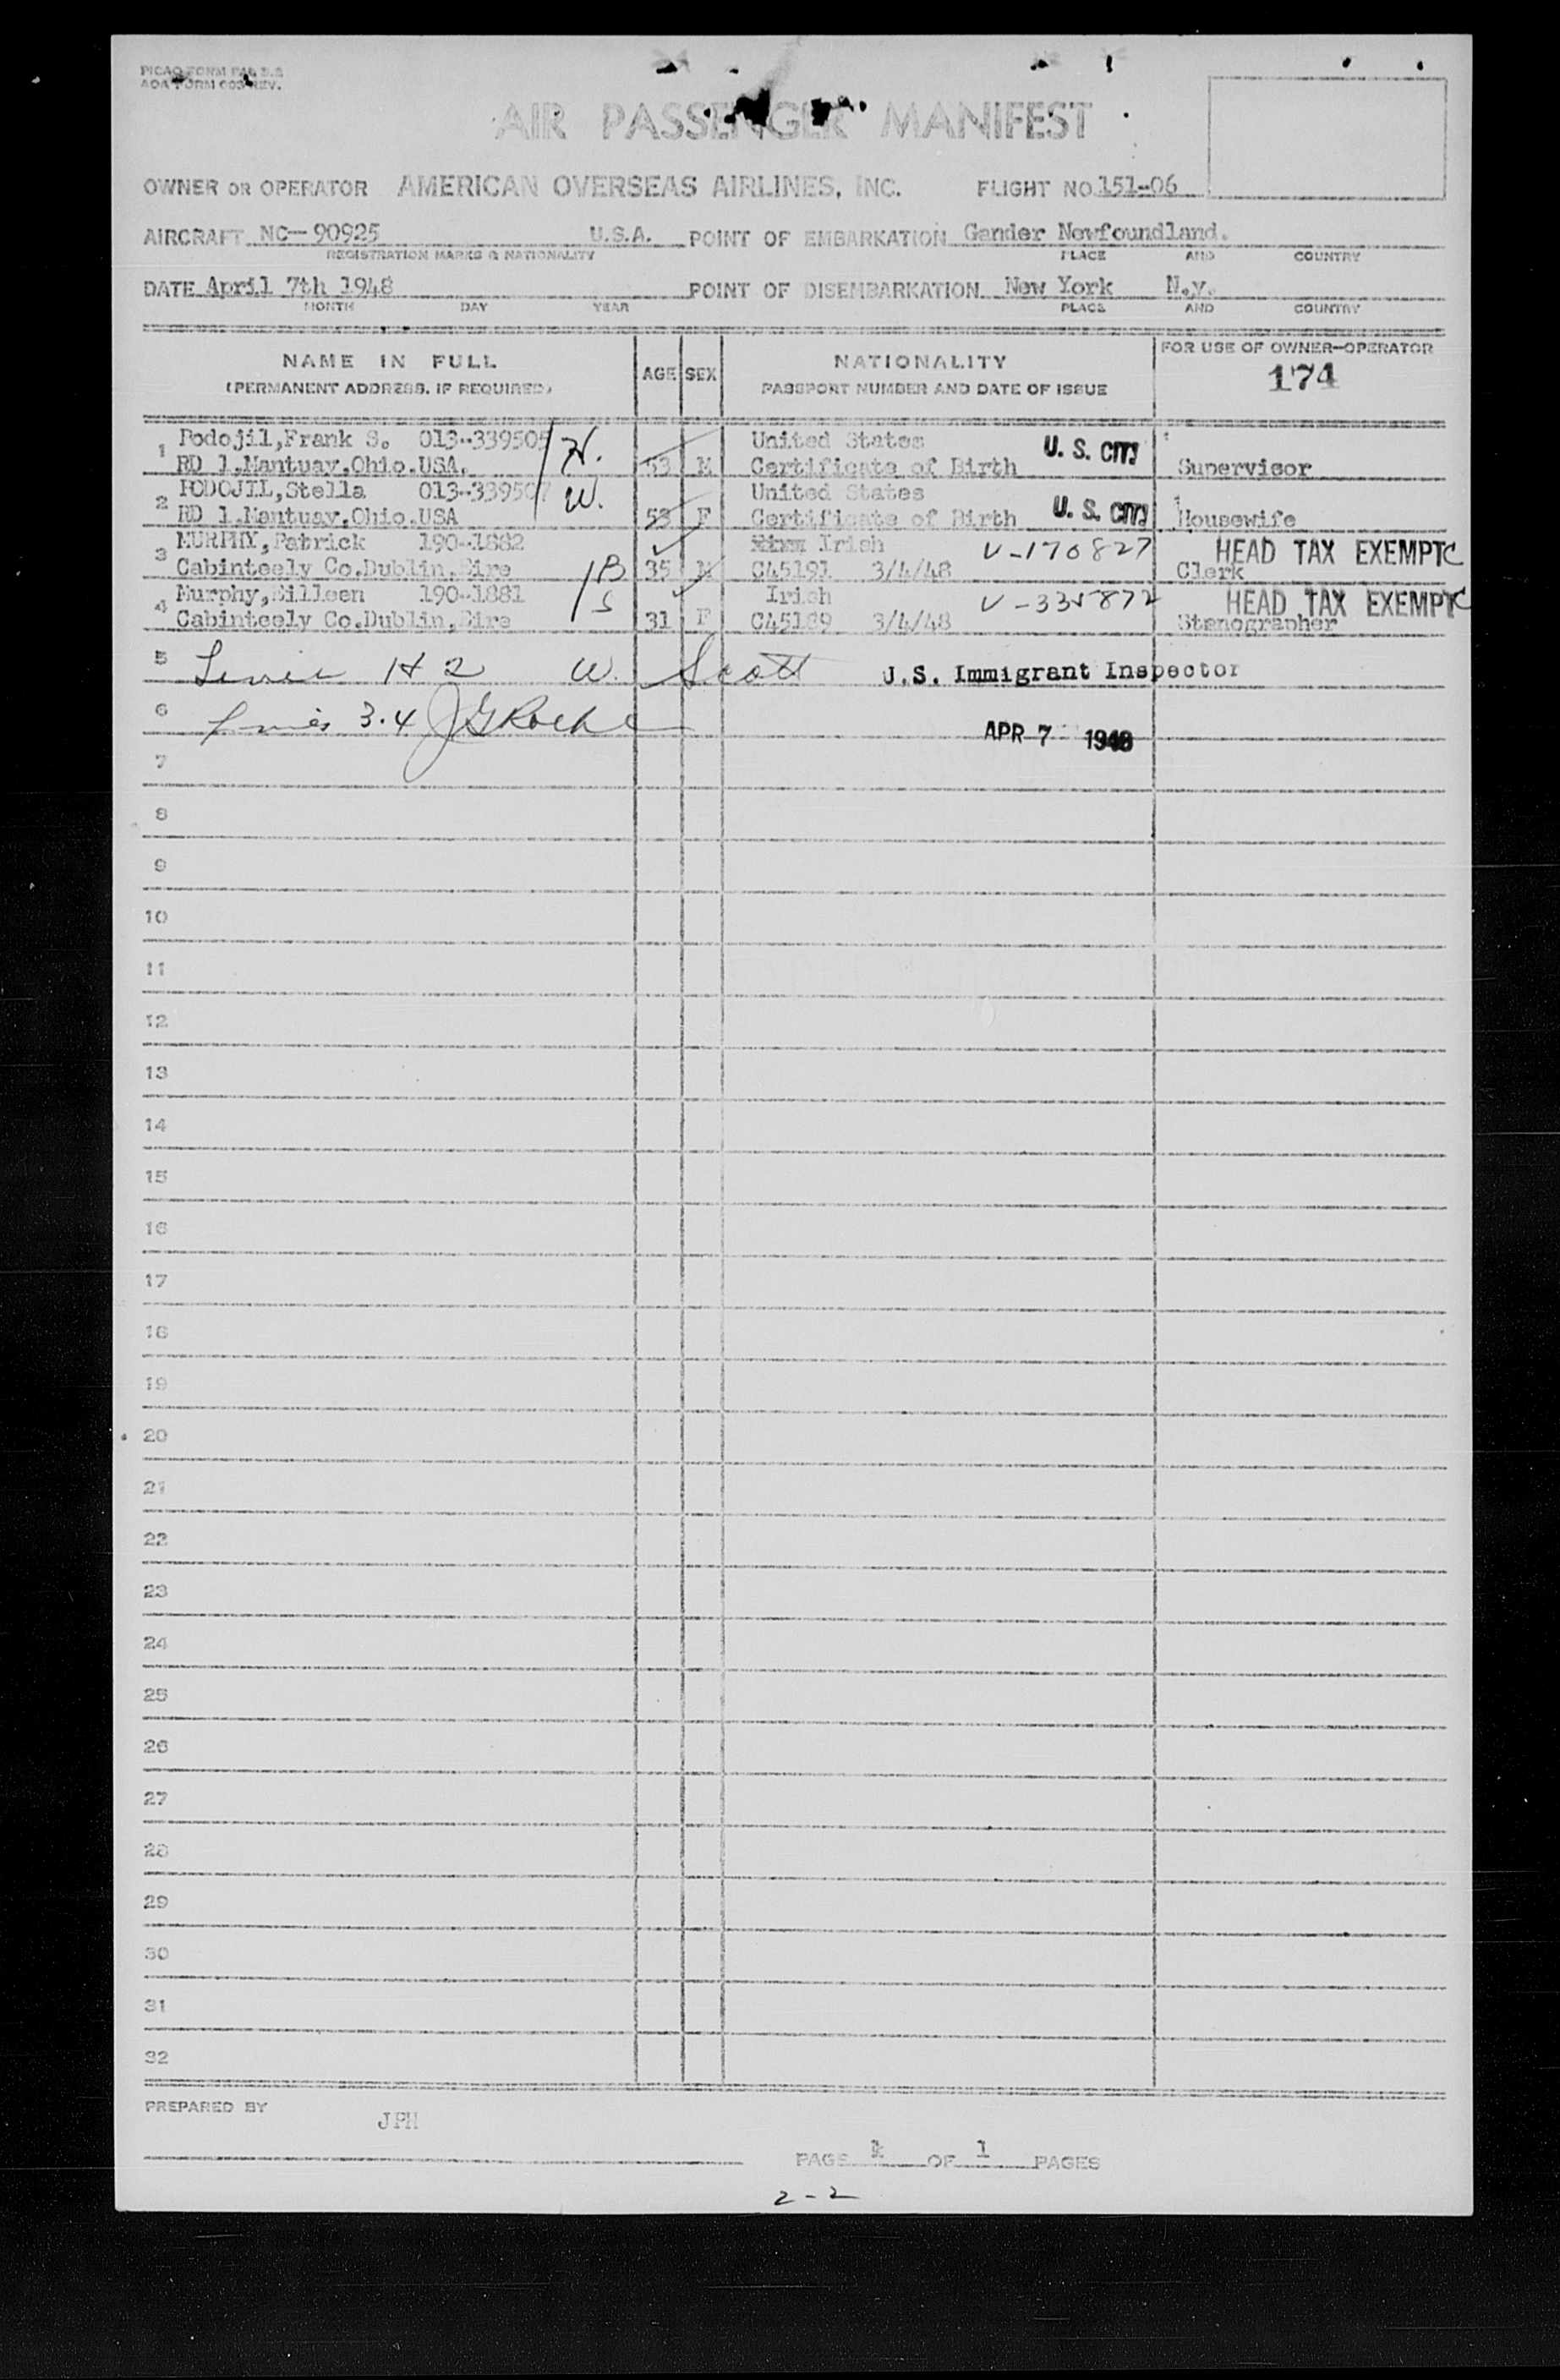 PICAO FORM PAL 2.2
AOA FORM 003 REV.
AIR PASSENGER MANIFEST
OWNER OR OPERATOR AMERICAN OVERSEAS AIRLINES, INC. FLIGHT NO. 151-06
AIRCRAFT NC-90925 U.S.A. POINT OF EMBARKATION Gander Newfoundland.
REGISTRATION MARKS & NATIONALITY PLACE AND COUNTRY
DATE April 7th 1948 POINT OF DISEMBARKATION New York N.y.
MONTH DAY YEAR PLACE AND COUNTRY
NAME IN FULL AGE SEX NATIONALITY FOR USE OF OWNER-OPERATOR
(PERMANENT ADDRESS, IF REQUIRED) PASSPORT NUMBER AND DATE OF ISSUE 174
1 Podojil,Frank S. 013-339505 H. United States U.S. CITY
RD 1.Mantuay.Ohio.USA. 53 M Certificate of Birth Supervisor
2 PODOJIL,Stella 013-339507 W. United States U.S. CITY
RD 1.Mantuay.Ohio.USA 53 F Certificate of Birth Housewife
3 MURPHY,Patrick 190-1882 Irish V-170827 HEAD TAX EXEMPT C
Cabinteely Co.Dublin.Eire B 35 M C45191 3/4/48 Clerk
4 Murphy,Eilleen 190-1881 S Irish V-335872 HEAD TAX EXEMPT C
Cabinteely Co.Dublin,Eire 31 F C45189 3/4/48 Stenographer
5 W. Scott U.S. Immigrant Inspector
6 3.4 JGRoche APR 7 1948
7
8
9
10
11
12
13
14
15
16
17
18
19
20
21
22
23
24
25
26
27
28
29
30
31
32
PREPARED BY JPH
PAGE 1 OF 1 PAGES
2-2